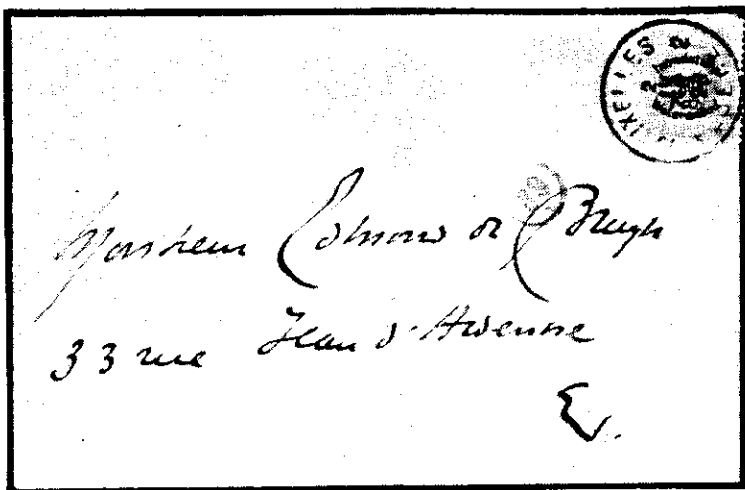 IXELLES 2
Monsieur Edmond de Bruyn
33 rue Jean d'Avenne
E.V.